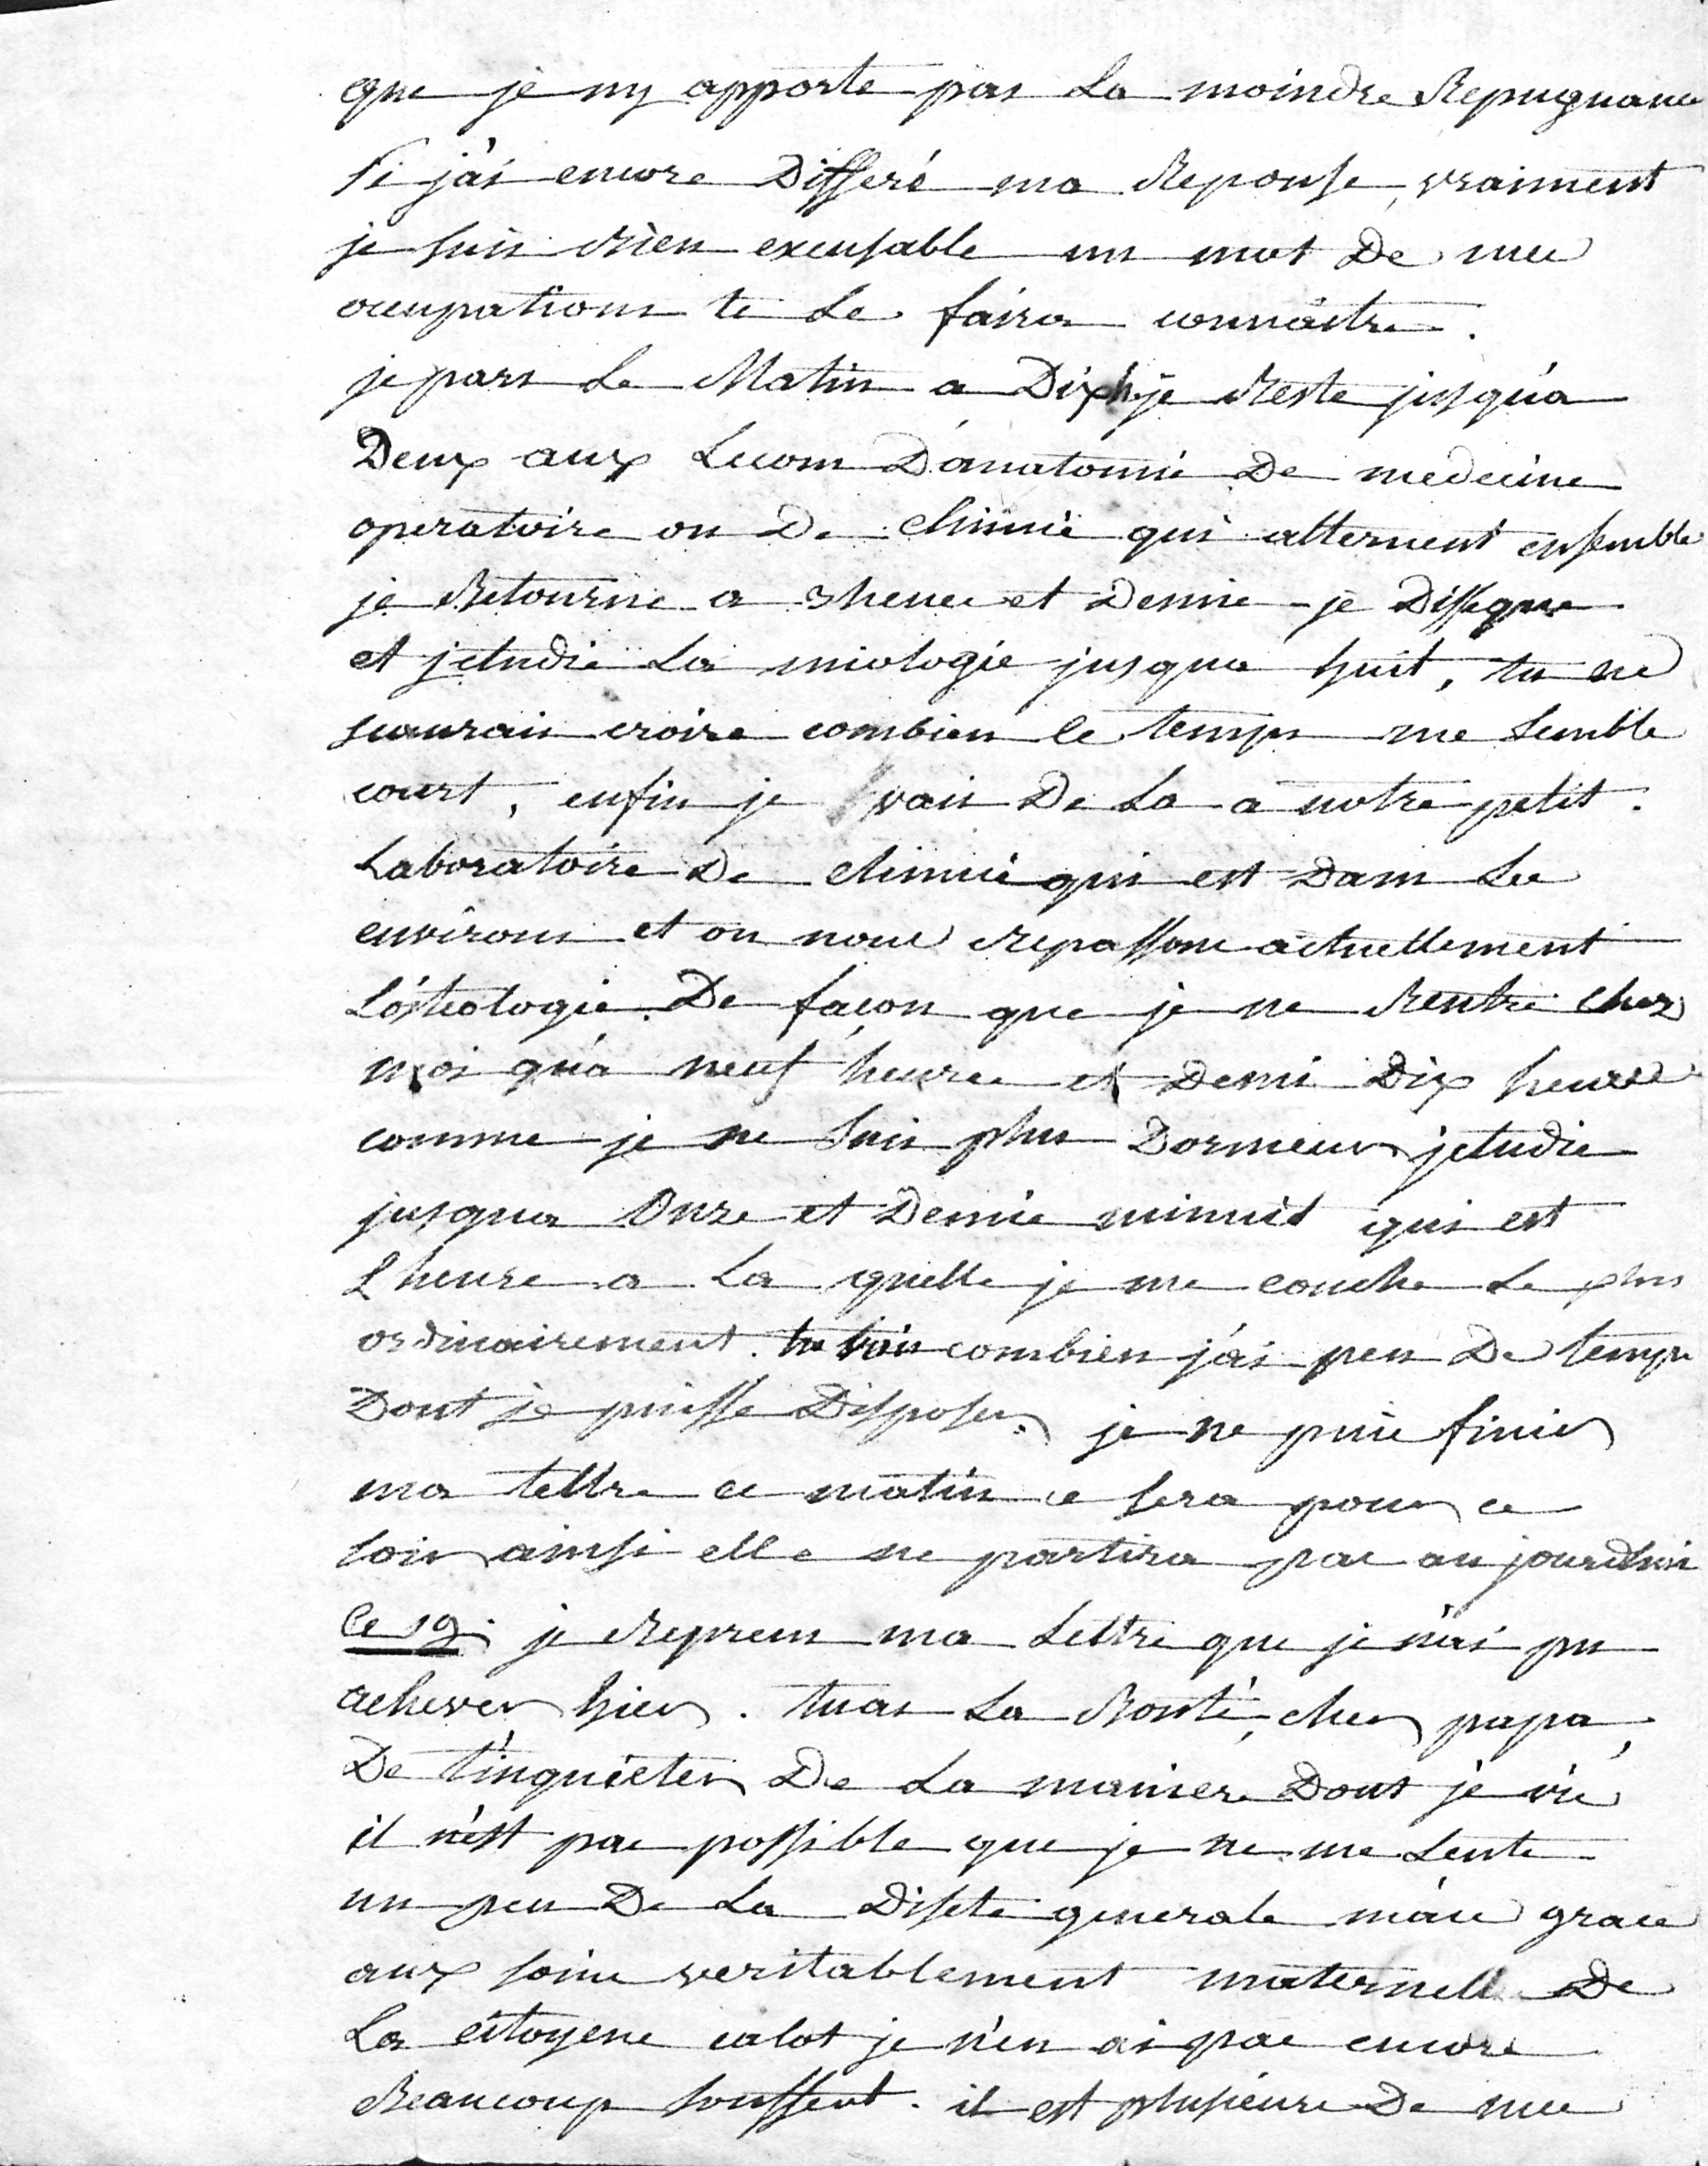 que je ny apporte pas La moindre Repugnance
Si j'ai encore Differé ma Reponse, vraiment
je suis bien excusable un mot De mes
occupations te Le faira connaitre.
je pars Le Matin a Dix h je Reste jusqu'a
Deux aux Lecons D'anatomie De medecine
operatoire ou De chimie qui alternent ensemble
je Retourne a 3 heures et Demie je Disseque
et j'etudie La miologie jusqua huit, tu ne
scaurais croire combien le temps me Semble
court, enfin je vais De La a notre petit
Laboratoire De chimie qui est Dans Les
environs et ou nous repassons actuellement
L'ósteologie. De façon que je ne Rentre chez
moi qu'a neuf heures et Demi Dix heures
comme je ne Suis plus Dormeur j'etudie
jusqua Onze et Demie minuit qui est
L heure a La quelle je me couche Le plus
ordinairement. tu vois combien j'ai peu De temps
Dont je puisse Disposer. je ne puis finir
ma lettre ce matin ce sera pour ce
soir ainsi elle ne partira pas aujourdhui
Ce 19. je Reprens ma Lettre que je n'ai pu
achever hier. tu as La Bonté, cher papa,
De t'inquieter De La maniere Dont je vis
il n'est pas possible que je ne me Sente
un peu De La Disete generale mais grace
aux soins veritablement maternell De
La citoyene calot je n'en ai pas encore
Beaucoup souffert. il est plusieurs De mes